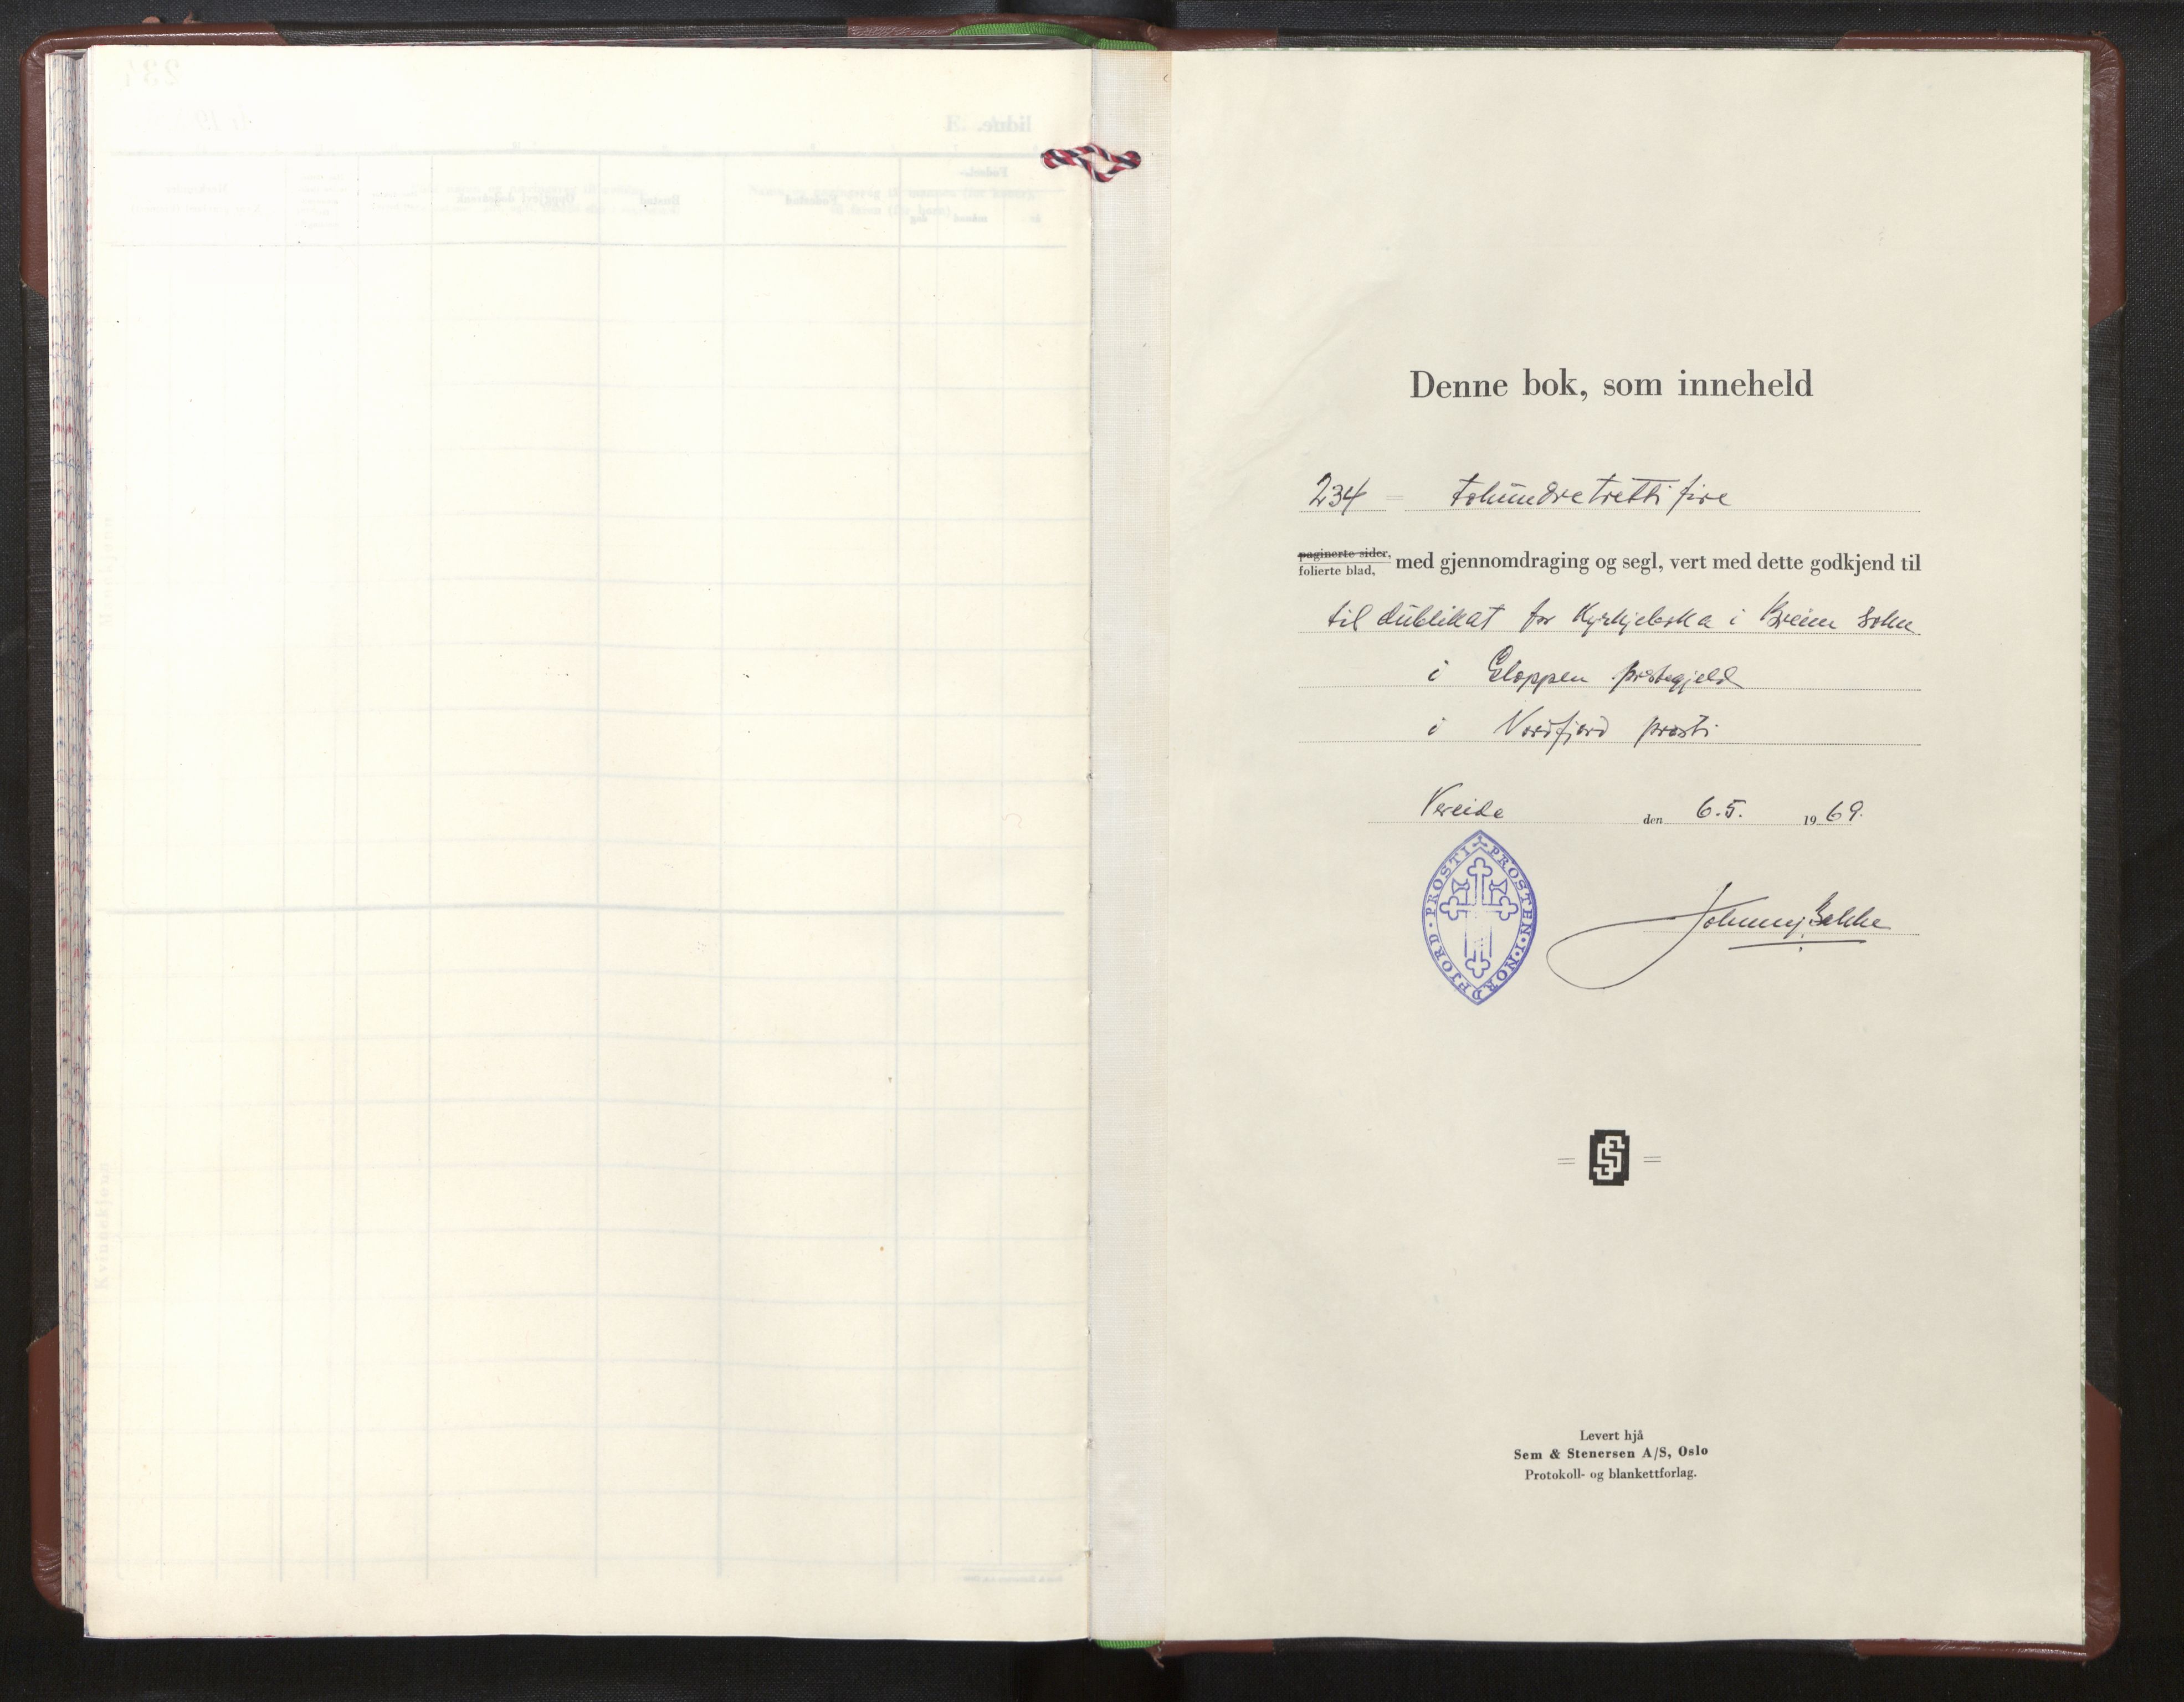 Denne bok, som inneheld
234 = tohundretrettifire
paginerte sider,
folierte blad,
med gjennomdraging og segl, vert med dette godkjend til
til dublikat for Kyrkjeboka i Breim sokn
i Gloppen prestegjeld
i Nordfjord prosti
Vereide den 6.5. 1969.
PROSTEN·I·NORDFJORD·PROSTI
Johnny Bakke
Levert hjå
Sem & Stenersen A/S, Oslo
Protokoll- og blankettforlag.